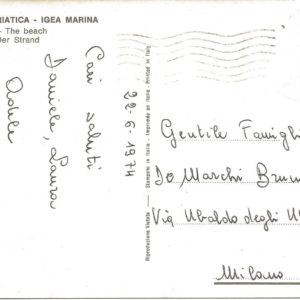 RIATICA - IGEA MARINA
- The beach
Der Strand
22-6-1974
Cari saluti
Daniele, Laura
Adele
Riproduzione Vietata Stampato in Italia - Imprimée en Italie - Printed in Italy
Gentile Famigli
De Marchi Brun
Via Ubaldo degli U
Milano